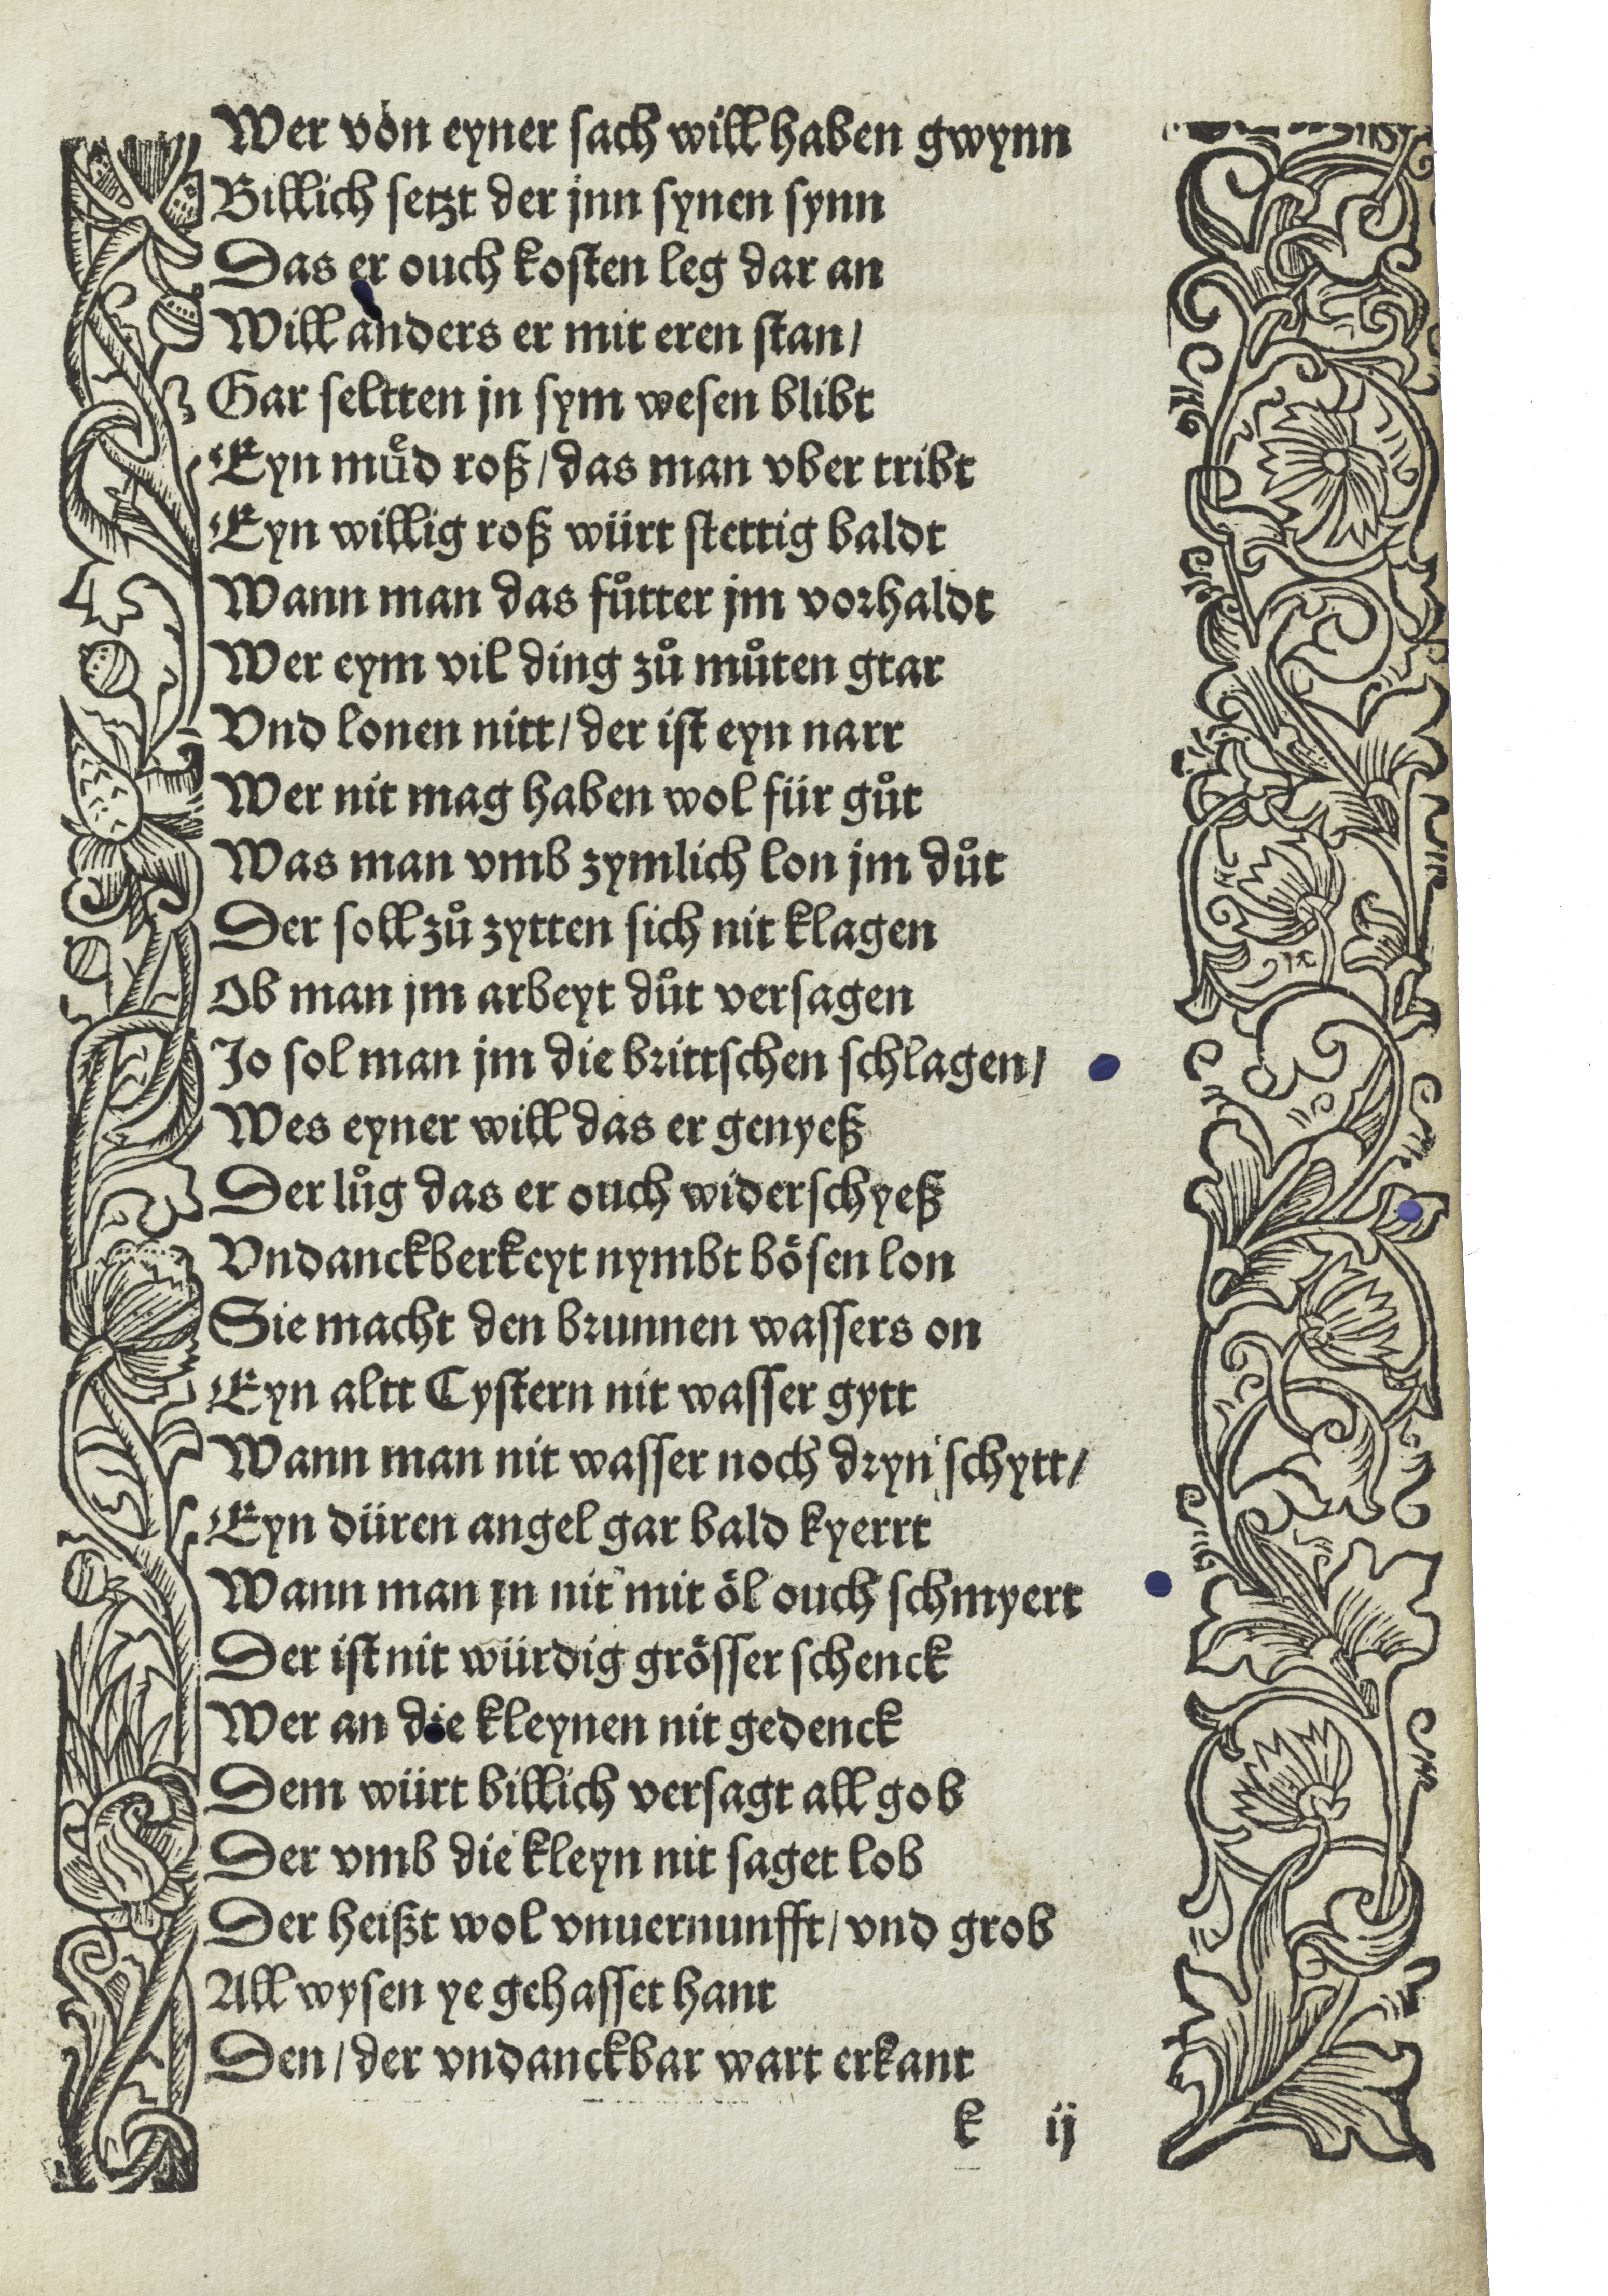 Wer von eyner sach will haben gwynn
Billich setzt der jnn synen synn
Das er ouch kosten leg dar an
Will anders er mit eren stan/
Gar seltten jn sym wesen blibt
Eyn muͤd roß/das man vber tribt
Eyn willig roß würt stettig baldt
Wann man das fůtter jm vorhaldt
Wer eym vil ding zů můten gtar
Vnd lonen nitt/der ist eyn narr
Wer nit mag haben wol für gůt
Was man vmb zymlich lon jm důt
Der soll zů zytten sich nit klagen
Ob man jm arbeyt důt versagen
Jo sol man jm die brittschen schlagen/
Wes eyner will das er genyeß
Der lůg das er ouch widerschyeß
Vndanckberkeyt nymbt bösen lon
Sie macht den brunnen wassers on
Eyn altt Cystern nit wasser gytt
Wann man nit wasser noch dryn schytt/
Eyn düren angel gar bald kyerrt
Wann man jn nit mit öl ouch schmyert
Der ist nit würdig grösser schenck
Wer an die kleynen nit gedenck
Dem würt billich versagt all gob
Der vmb die kleyn nit saget lob
Der heißt wol vnuernunfft/vnd grob
All wysen ye gehasset hant
Den/der vndanckbar wart erkant
k ij